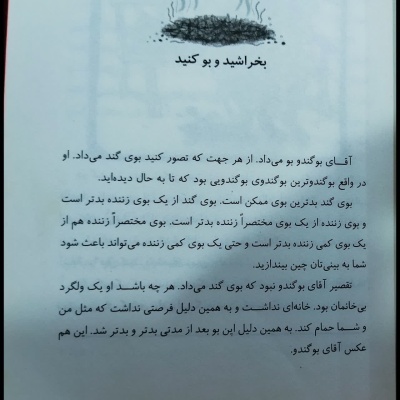 بخراشید و بو کنید
آقــای بوگندو بو می‌داد. از هر جهت که تصور کنید بوی گند می‌داد. او
در واقع بوگندوترین بوگندوی بوگندویی بود که تا به حال دیده‌اید.
بوی گند بدترین بوی ممکن است. بوی گند از یک بوی زننده بدتر است
و بوی زننده از یک بوی مختصراً زننده بدتر است. بوی مختصراً زننده هم از
یک بوی کمی زننده بدتر است و حتی یک بوی کمی زننده می‌تواند باعث شود
شما به بینی‌تان چین بیندازید.
تقصیر آقای بوگندو نبود که بوی گند می‌داد. هر چه باشــد او یک ولگرد
بی‌خانمان بود. خانه‌ای نداشــت و به همین دلیل فرصتی نداشت که مثل من
و شــما حمام کند. به همین دلیل این بو بعد از مدتی بدتر و بدتر شد. این هم
عکس آقای بوگندو.